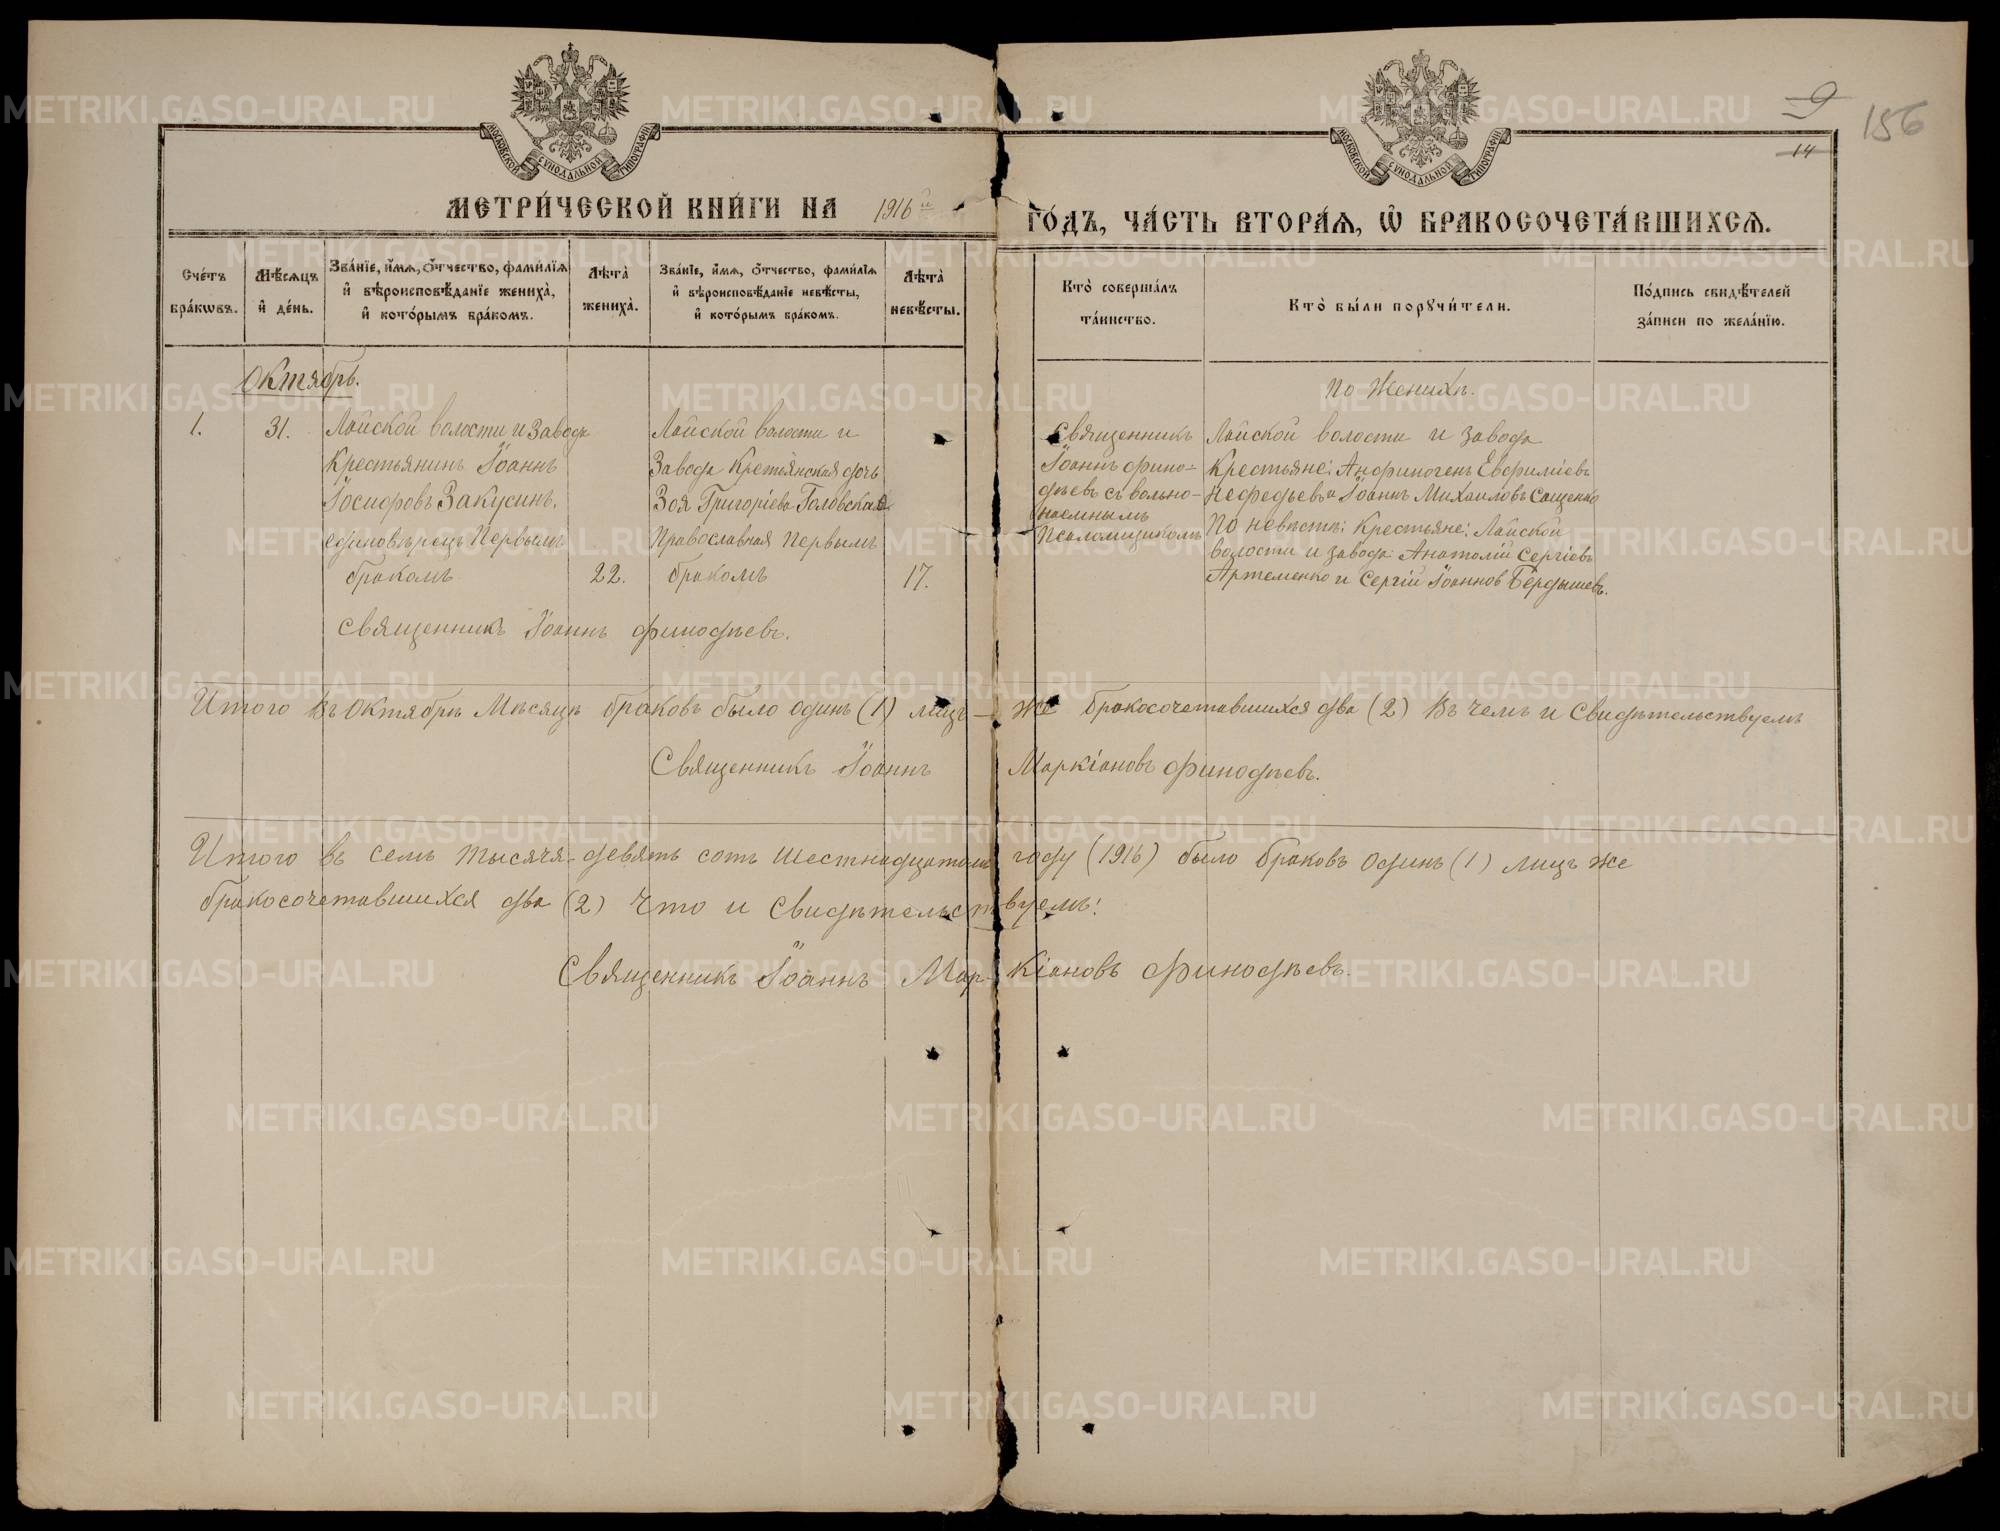 МОСКОВСКОЙ СѴНОДАЛЬНОЙ ТИПОГРАФІИ
МОСКОВСКОЙ СѴНОДАЛЬНОЙ ТИПОГРАФІИ
9
14
156
МЕТРИ́ЧЕСКОЙ КНИ́ГИ НА 1916й ГО́ДЪ, ЧА́СТЬ ВТОРА́Я, Ѡ БРАКОСОЧЕТА́ВШИХСЯ.
Сче́тъ бра́кѡвъ.
Мѣ́сяцъ и҆ де́нь.
Зва́нїе, и҆́мя, ѻ҆́тчество, фами́лїя и҆ вѣроисповѣ́данїе жениха̀, и҆ кото́рымъ бра́комъ.
Лѣта̀ жениха̀.
Зва́нїе, и҆́мя, ѻ҆́тчество, фами́лїя и҆ вѣроисповѣ́данїе невѣ́сты, и҆ кото́рымъ бра́комъ.
Лѣта̀ невѣ́сты.
Кто̀ соверша́лъ та́инство.
Кто̀ бы́ли порꙋчи́тели.
По́дпись свидѣ́телей за́писи по жела́нїю.
Октябрь.
1.
31.
Лайской волости и завода
Крестьянинъ Іоаннъ
Іосифовъ Закусинъ.
единовѣрецъ Первымъ
бракомъ
22.
Лайской волости и
Завода Кретіянская дочь
Зоя Григоріева Головская
Православная Первымъ
бракомъ
17.
Священникъ
Іоаннъ Фино-
дѣевъ съ вольно-
наемнымъ
Псаломщикомъ
По Женихѣ.
Лайской волости и завода
Крестьяне: Анфиногенъ Евфиміевъ
Нефедьевъ и Іоаннъ Михаиловъ Сащенко
По невѣстѣ: Крестьяне: Лайской
волости и завода Анатолій Сергіевъ
Артеменко и Сергій Іоаннов Бердышевъ.
Священникъ Іоаннъ Финодѣевъ.
Итого въ Октябрѣ Мѣсяцѣ браковъ было одинъ (1) лицъ — же бракосочетавшихся два (2) Въ чемъ и Свидѣтельствуемъ
Священникъ Іоаннъ Маркіановъ Финодѣевъ.
Итого въ семъ тысяча-девять сотъ шестнадцатомъ году (1916) было браковъ Одинъ (1) лицъ же
бракосочетавшихся два (2) Что и Свидѣтельствуемъ:
Священникъ Іоаннъ Мар-кіановъ Финодѣевъ.
METRIKI.GASO-URAL.RU